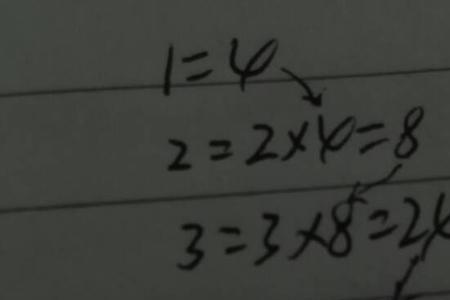 1=4
2=2×4=8
3=3×8=24